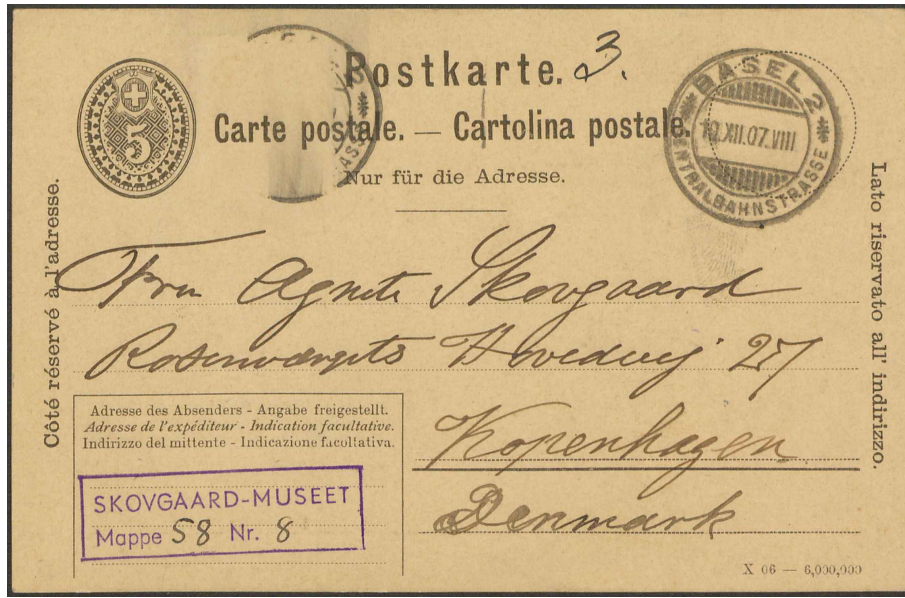 Postkarte. 3.
Carte postale. — Cartolina postale.
Nur für die Adresse.
5
BASEL 2
CENTRALBAHNSTRASSE
Côté réservé à l'adresse.
Lato riservato all' indirizzo.
Fru Agnete Skovgaard
Rosenvængets Hovedvej 27
Kopenhagen
Denmark
Adresse des Absenders - Angabe freigestellt.
Adresse de l'expéditeur - Indication facultative.
Indirizzo del mittente - Indicazione facoltativa.
SKOVGAARD-MUSEET
Mappe 58 Nr. 8
X 06 — 6,000,000